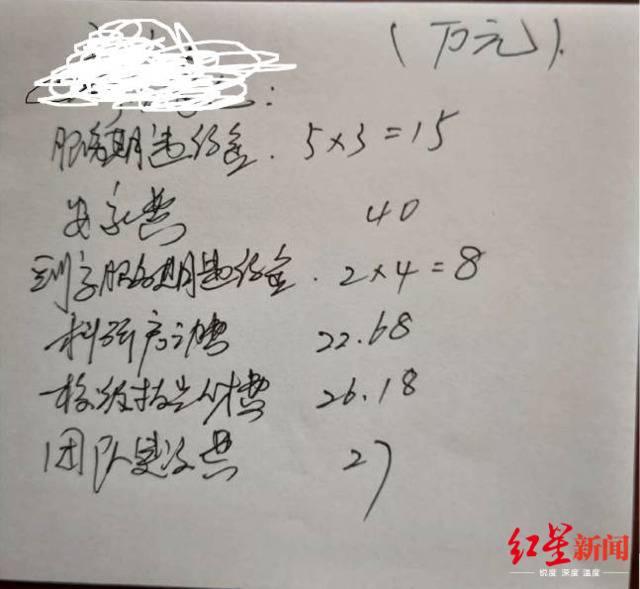 (万元).
:
服务期违约金. 5×3=15
安家费 40
到字服务期违约金. 2×4=8
科研启动费 22.68
校级拔尖人才费 26.18
团队建设费 27
红星新闻
锐度 深度 温度